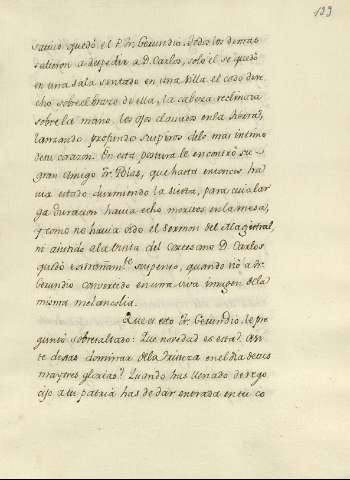 133
quedó el P. Fr. Gerundio. Todos los demas
salieron a despedir a D. Carlos, solo él se quedó
en una sala sentado en una silla el codo dere-
cho sobre el brazo de ella, la cabeza reclinada
sobre la mano, los ojos clavados en la
lanzando profundos suspiros de lo mas intimo
de su corazon. En esta postura le encontró su
gran Amigo Fr. Blas, que hasta entonces ha-
via estado durmiendo la siesta, para cuia lar-
ga duracion havia echo meritos en la mesa,
y como no havia oido el sermon del Magistral,
ni asistido a la visita del Cortesano D. Carlos
quedó estrañam.te suspenso, quando vió a Fr.
Gerundio convertido en una viva imagen de la
misma melancolia.
Que es esto Fr. Gerundio, le pre-
guntó sobresaltado: Que novedad es esta? An-
te dejas dominar de la tristeza en el dia de tus
mayores glorias? Quando has llenado de rego-
cijo a tu patria has de dar entrada en tu co